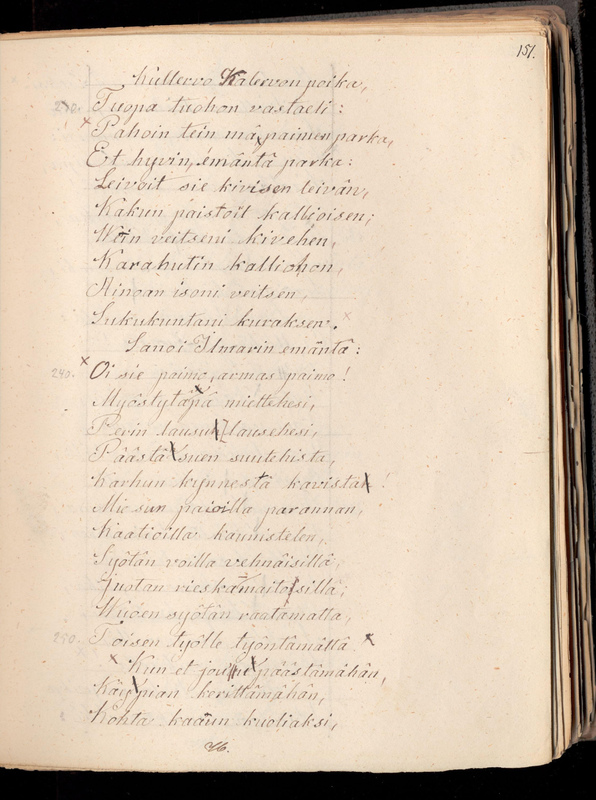 151.
Kullervo Kalervon poika,
230. Tuopa tuohon vastaeli:
Pahoin tein mä paimen parka,
Et hyvin, emäntä parka:
Leivoit sie kivisen leivän,
Kakun paistoit kallioisen;
Wein veitseni kivehen,
Karahutin kalliohon,
Ainoan isoni veitsen,
Sukukuntani kuraksen.
Sanoi Ilmarin emäntä:
240. Oi sie paimo, armas paimo!
Myöstytäpä miettehesi,
Perin lausu lausehesi,
Päästä suen suutehista,
Karhun kynnestä kavista!
Mie sun paioilla parannan,
Kaatioilla kaunistelen,
Syötän voilla vehnäisillä,
Juotan rieskamaitosilla;
Wuoen syötän raatamatta,
250. Toisen työlle työntämättä.
Kun et jou'u päästämähän,
Käy pian kerittämähän,
Kohta kaaun kuoliaksi,